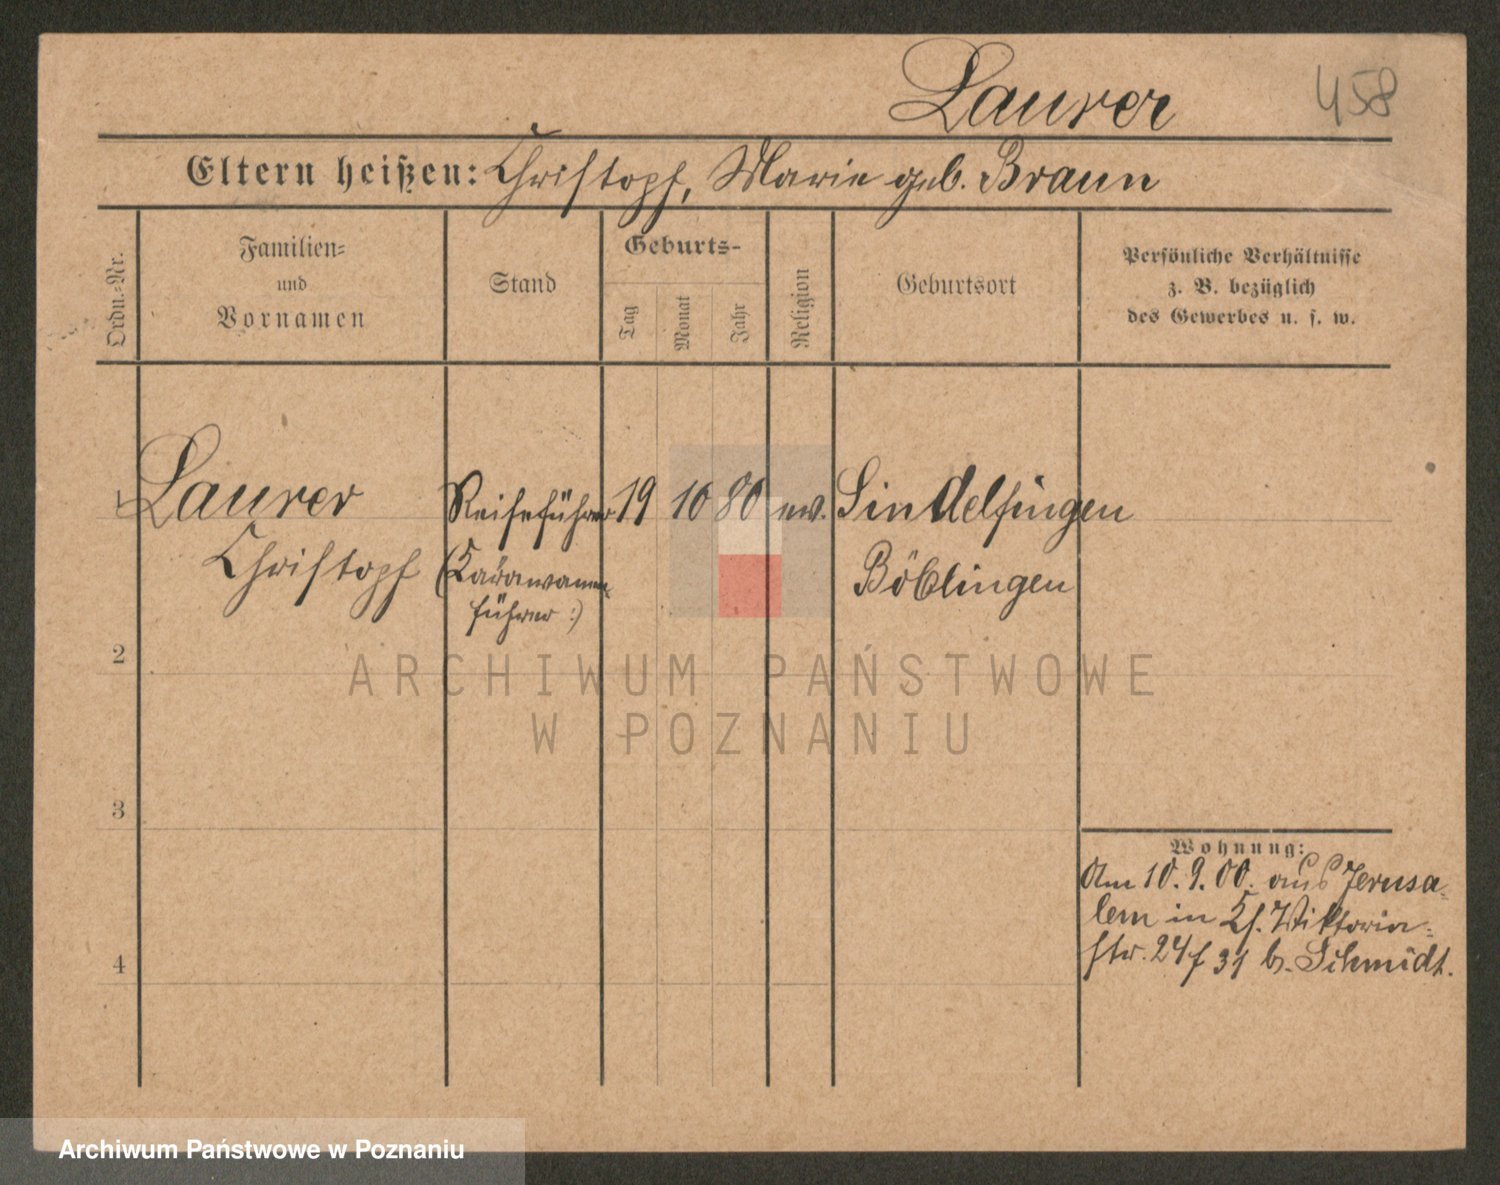 Laurer
458
Eltern heißen: Christoph, Marie geb. Braun
Ordn.-Nr.
Familien-
und
Vornamen
Stand
Geburts-
Tag
Monat
Jahr
Religion
Geburtsort
Persönliche Verhältnisse
z. B. bezüglich
des Gewerbes u. s. w.
1 Laurer Reiseführer 19 10 80 ev. Sindelfingen
Christoph (Karawanen
führer :) Böblingen
2
ARCHIWUM PAŃSTWOWE
W POZNANIU
3
Wohnung:
Am 10. 9. 00. aus Jerusa-
lem in Viktoria-
str. 24 31 b. Schmidt.
4
Archiwum Państwowe w Poznaniu